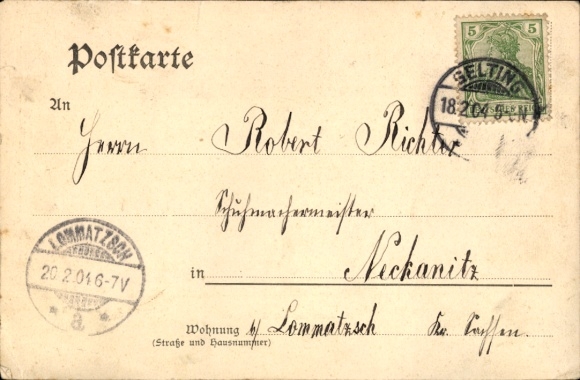 Postkarte
5 5
GELTING
18.2.04
DEUTSCHES REICH
An
Herrn Robert Richter
Schuhmachermeister
LOMMATZSCH
20.2.04.6-7V
* a *
in Neckanitz
Wohnung b/ Lommatzsch Kr. Sachsen.
(Straße und Hausnummer)